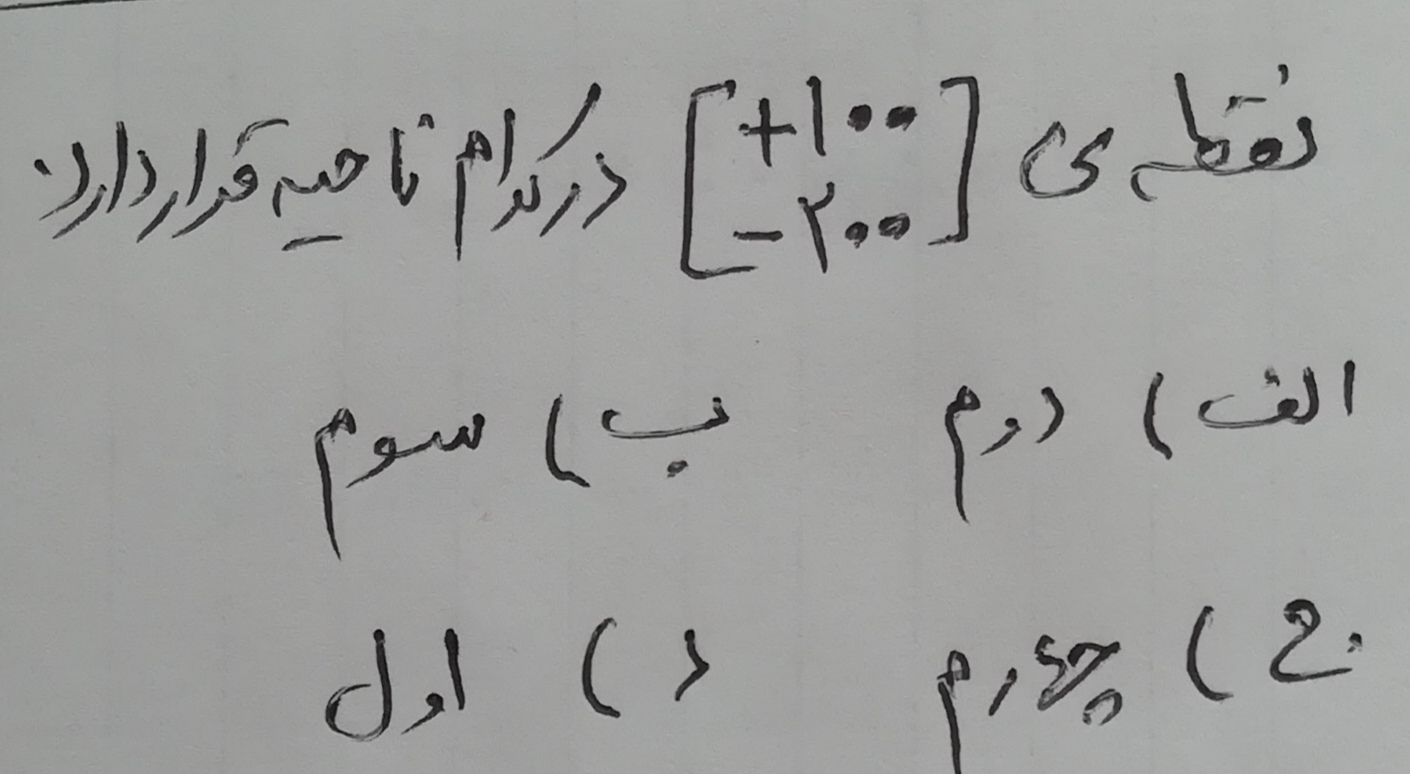 نقطه ی [+۱۰۰ -۲۰۰] در کدام ناحیه قرار دارد.
الف) دوم ب) سوم
ج) چهارم د) اول